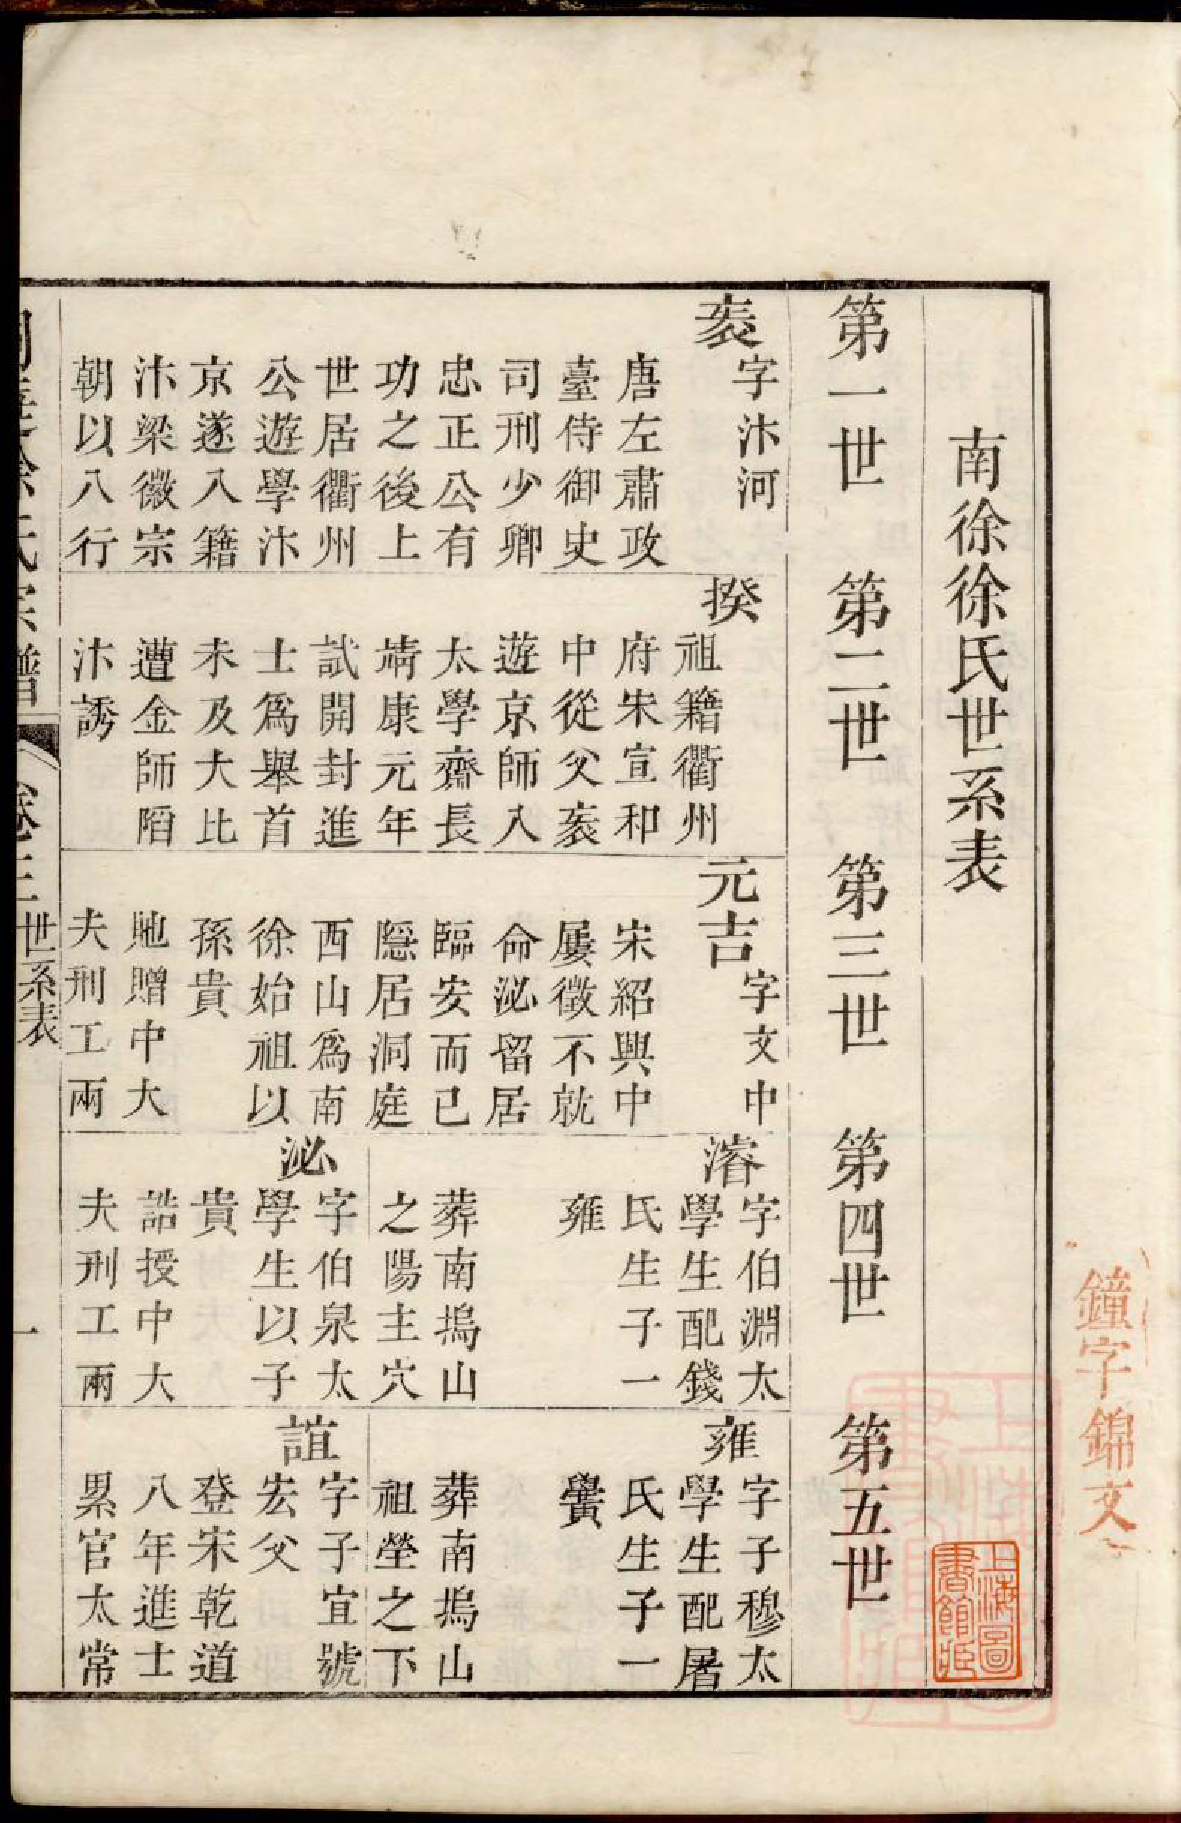 南徐徐氏世系表
第一世
第二世
第三世
第四世
第五世
袠
字汴河
唐左肅政
臺侍御史
司刑少卿
忠正公有
功之後上
世居衢州
公遊學汴
京遂入籍
汴梁徽宗
朝以八行
揆
祖籍衢州
府宋宣和
中從父袠
遊京師入
太學齋長
靖康元年
試開封進
士爲舉首
未及大比
遭金師陷
汴誘
元吉
字文中
宋紹興中
屢徵不就
命泌留居
臨安而已
隱居洞庭
西山爲南
徐始祖以
孫貴
貤贈中大
夫刑工兩
濬
字伯淵太
學生配錢
氏生子一
雍
葬南塢山
之陽主穴
泌
字伯泉太
學生以子
貴
誥授中大
夫刑工兩
雍
字子穆太
學生配屠
氏生子一
黌
葬南塢山
祖塋之下
誼
字子宜號
宏父
登宋乾道
八年進士
累官太常
徐氏宗譜
卷三
世系表
一
鐘字錦文
上海圖書館藏